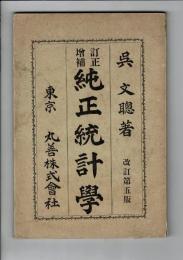 呉文聰著
改訂第五版
訂正
増補
純正統計學
東京 丸善株式會社